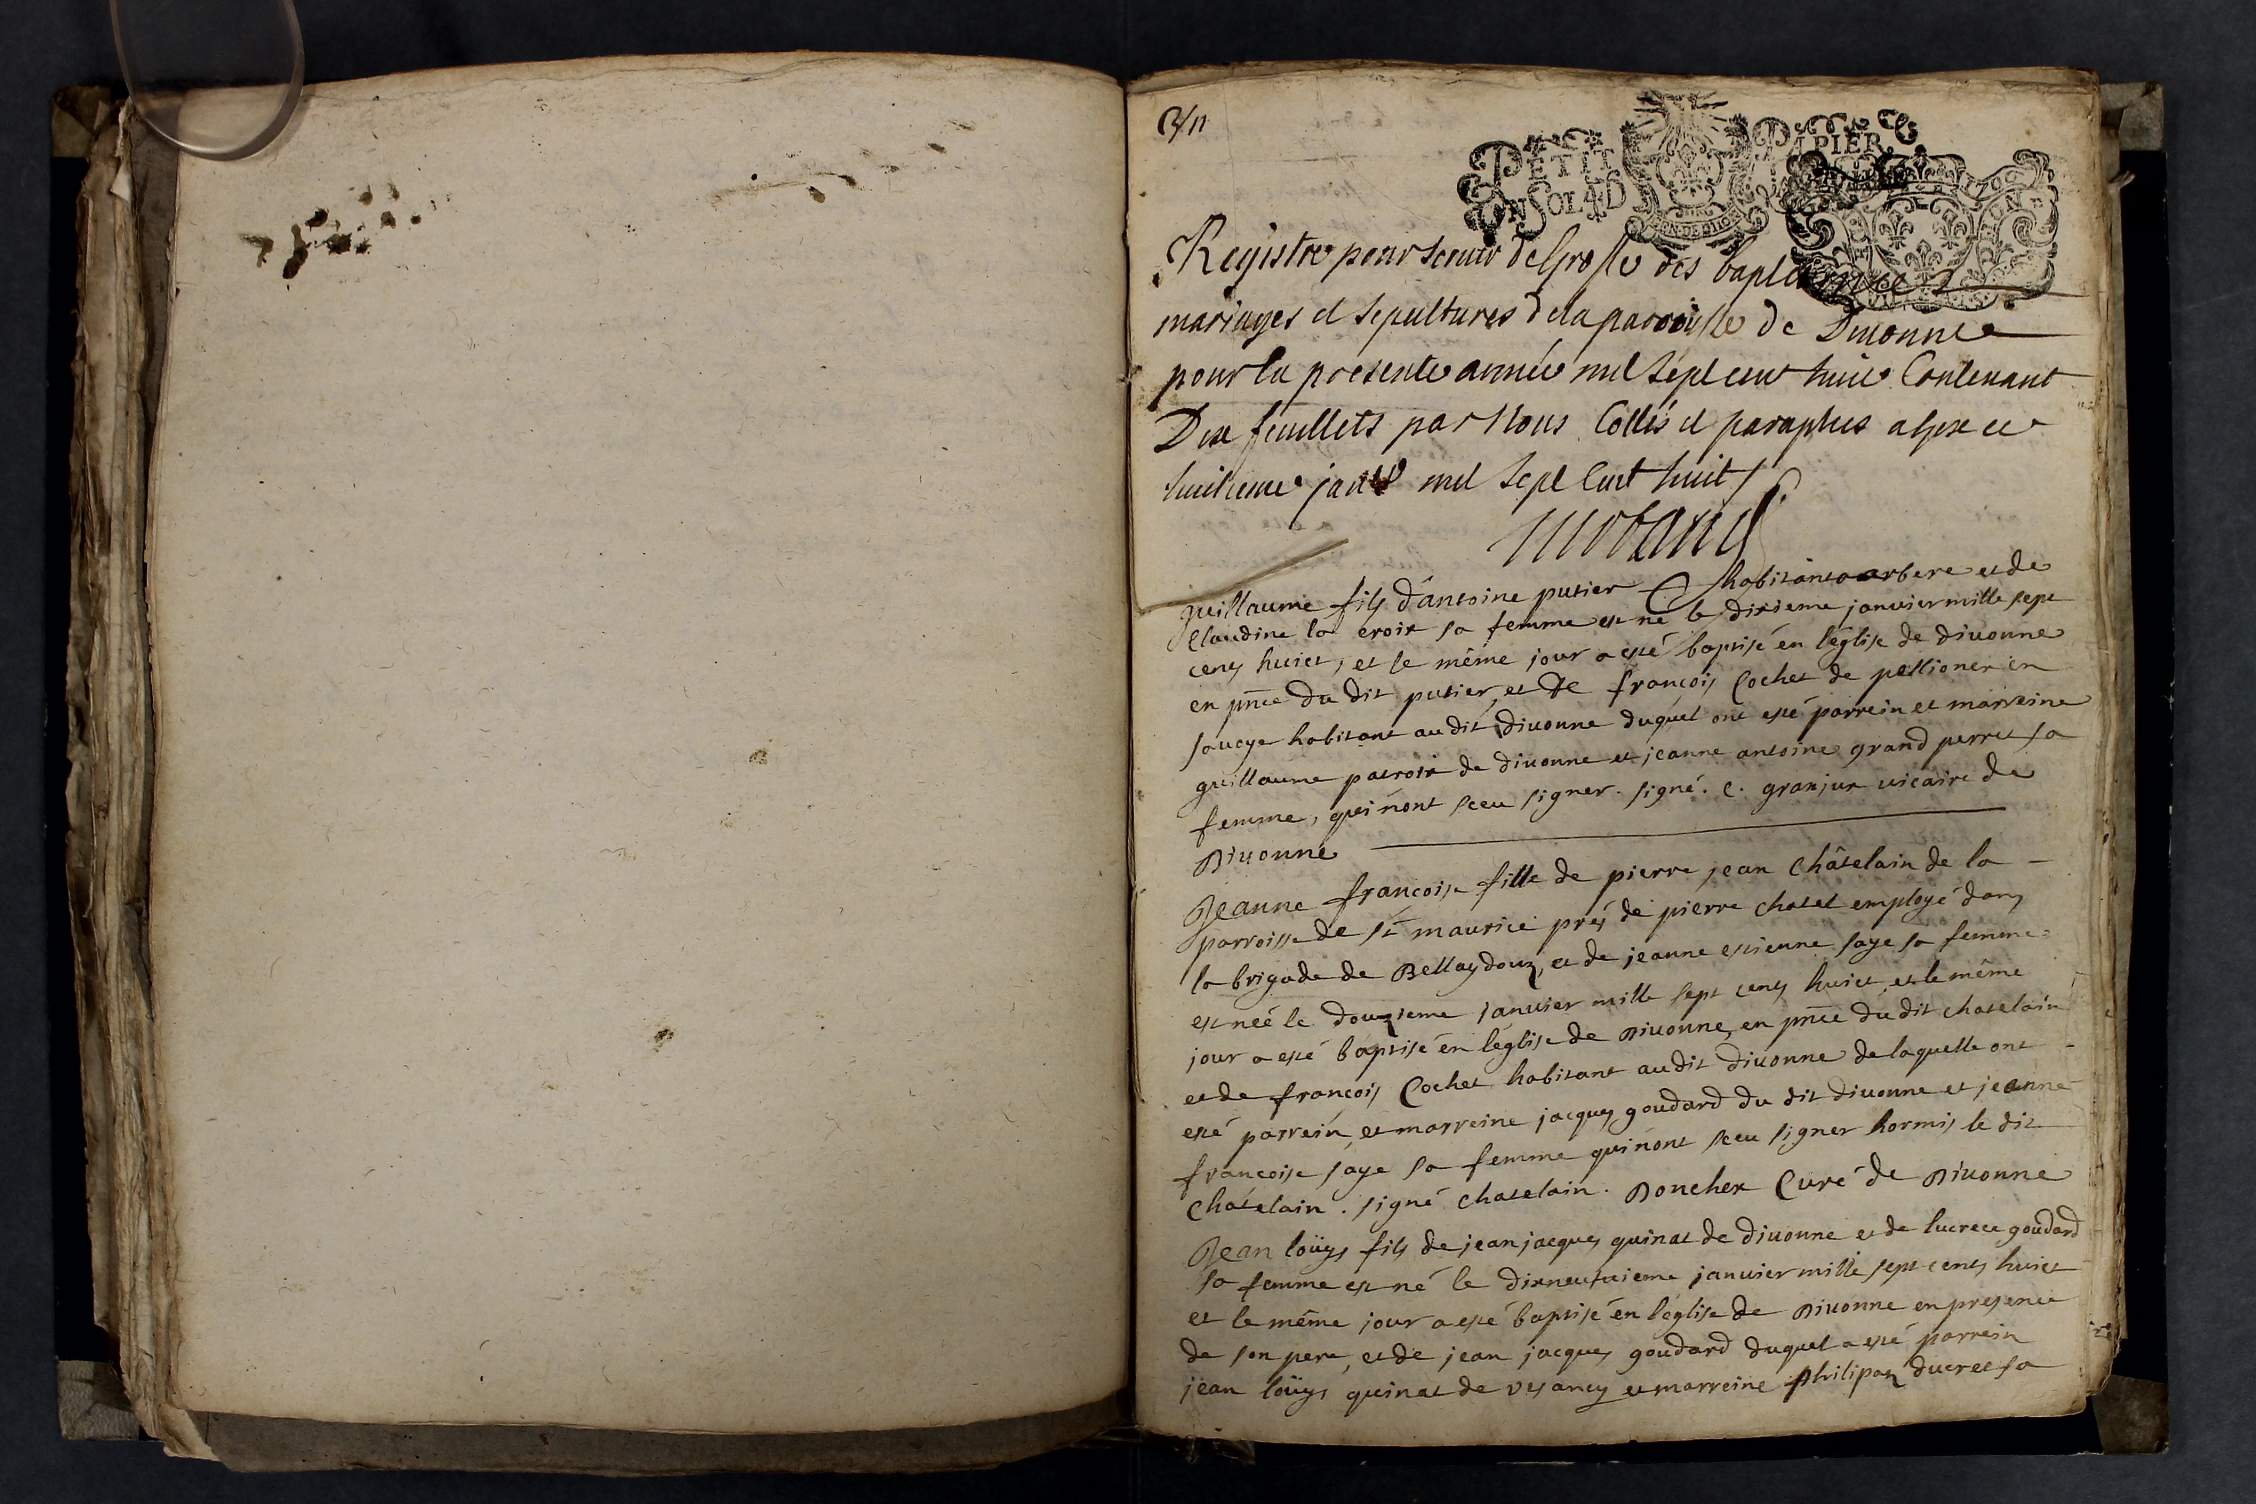 PETIT PAPIER
UN SOL 4 D
GEN. DE DIJON
Registre pour servir de Grosse des baptesmes
mariages et sepultures de la parroisse de Divonne
pour la presente année mil sept cent huit Contenant
Dix feuillets par Nous Cottés et paraphés a Gex ce
huitieme janv mil sept Cent huit
guillaume fils d'antoine putier habitant a arbere et de
Claudine la croix sa femme est né le dixieme januier mille sept
cens huict, et le même jour a esté baptisé en l'église de diuonne
en pnce du dit putier, et de françois Cochet de pellioner en
sauoye habitant au dit diuonne duquel ont esté parrein et marreine
guillaume patroix de diuonne et jeanne antoine grand perret sa
femme, qui n'ont sceu signer. signé. C. granjux uicaire de
Diuonne
Jeanne françoise fille de pierre jean Châtelain de la
parroisse de st maurice prés de pierre chatel employé dans
la brigade de Bellaydoux, et de jeanne estienne saye sa femme
est neé le douzieme januier mille sept cens huict, et le même
jour a esté baptisé en l'église de Diuonne, en pnce du dit chatelain
et de françois Cochet habitant au dit diuonne de laquelle ont
esté parrein et marreine jacques goudard du dit diuonne et jeanne
françoise saye sa femme qui n'ont sceu signer hormis le dit
Châtelain. signé chatelain. Doncher Curé de Diuonne
Jean loüys fils de jean jacques quinat de diuonne et de lucrece goudard
sa femme est né le dixneufuieme januier mille sept cens huict
et le même jour a esté baptisé en l'église de Diuonne en presence
de son pere, et de jean jacques goudard duquel a esté parrein
jean loüys quinat de vesancy et marreine philipaz ducret sa